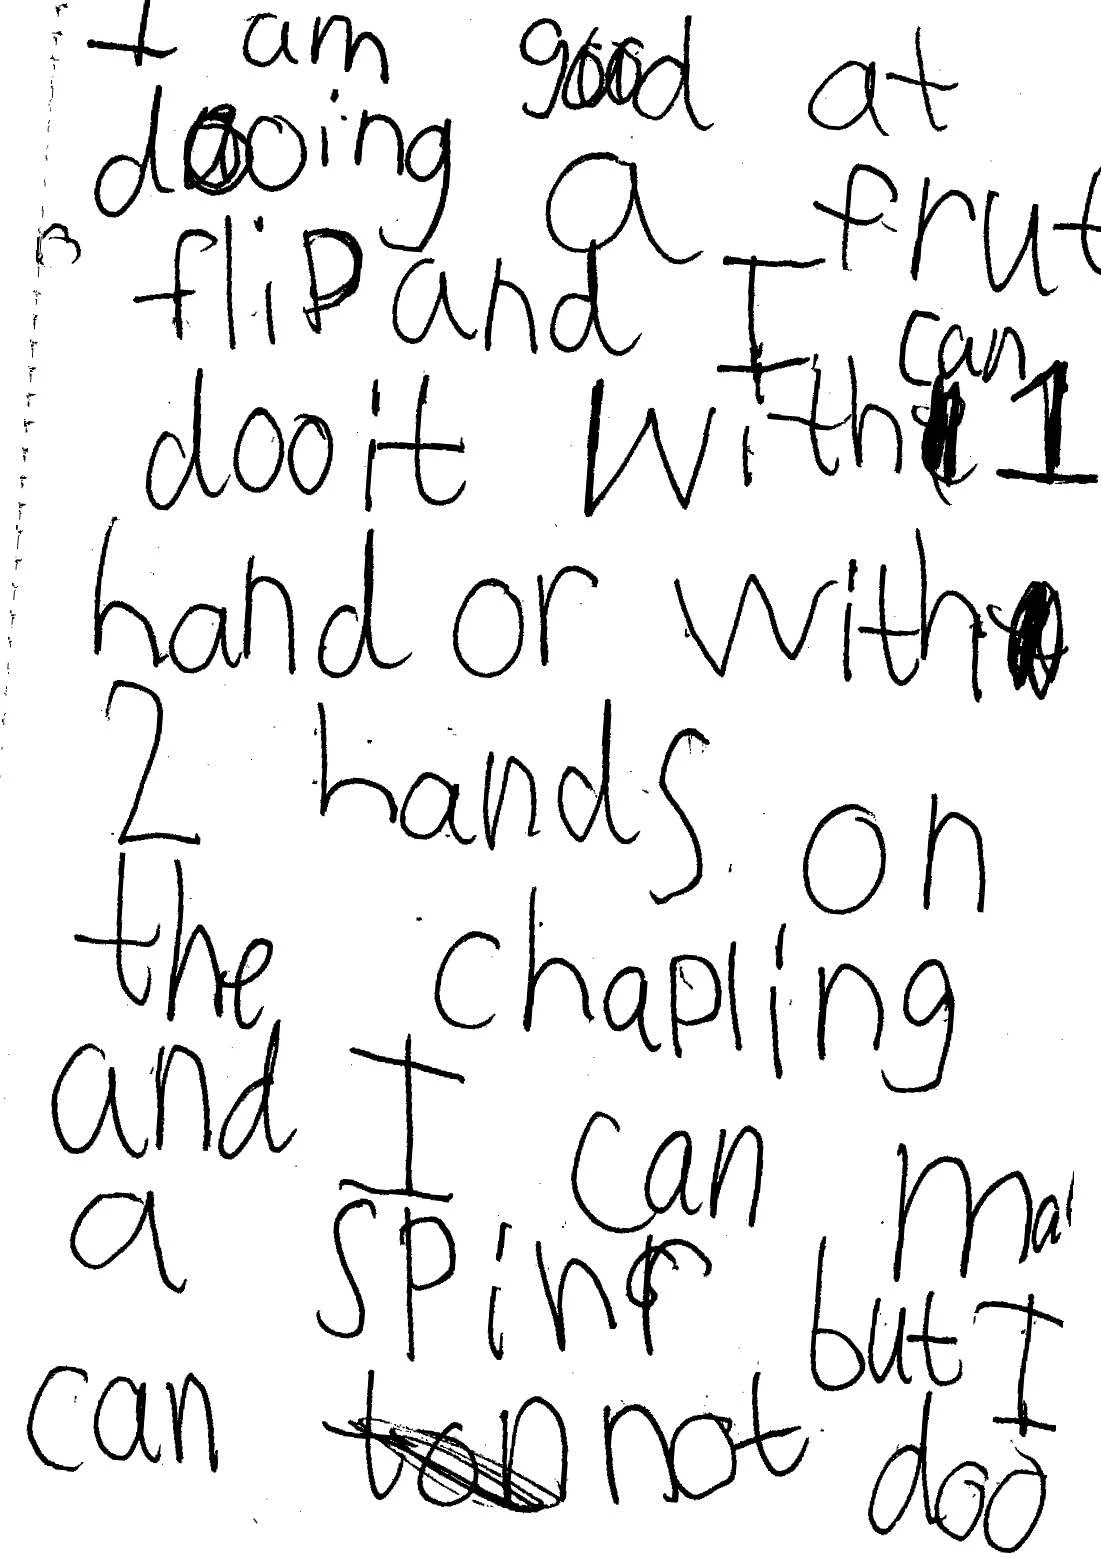 I am good at
dooing a frut
flip and I can
doo it with 1
hand or with
2 hands on
the chapling
and I can ma
a spinr but I
can not doo